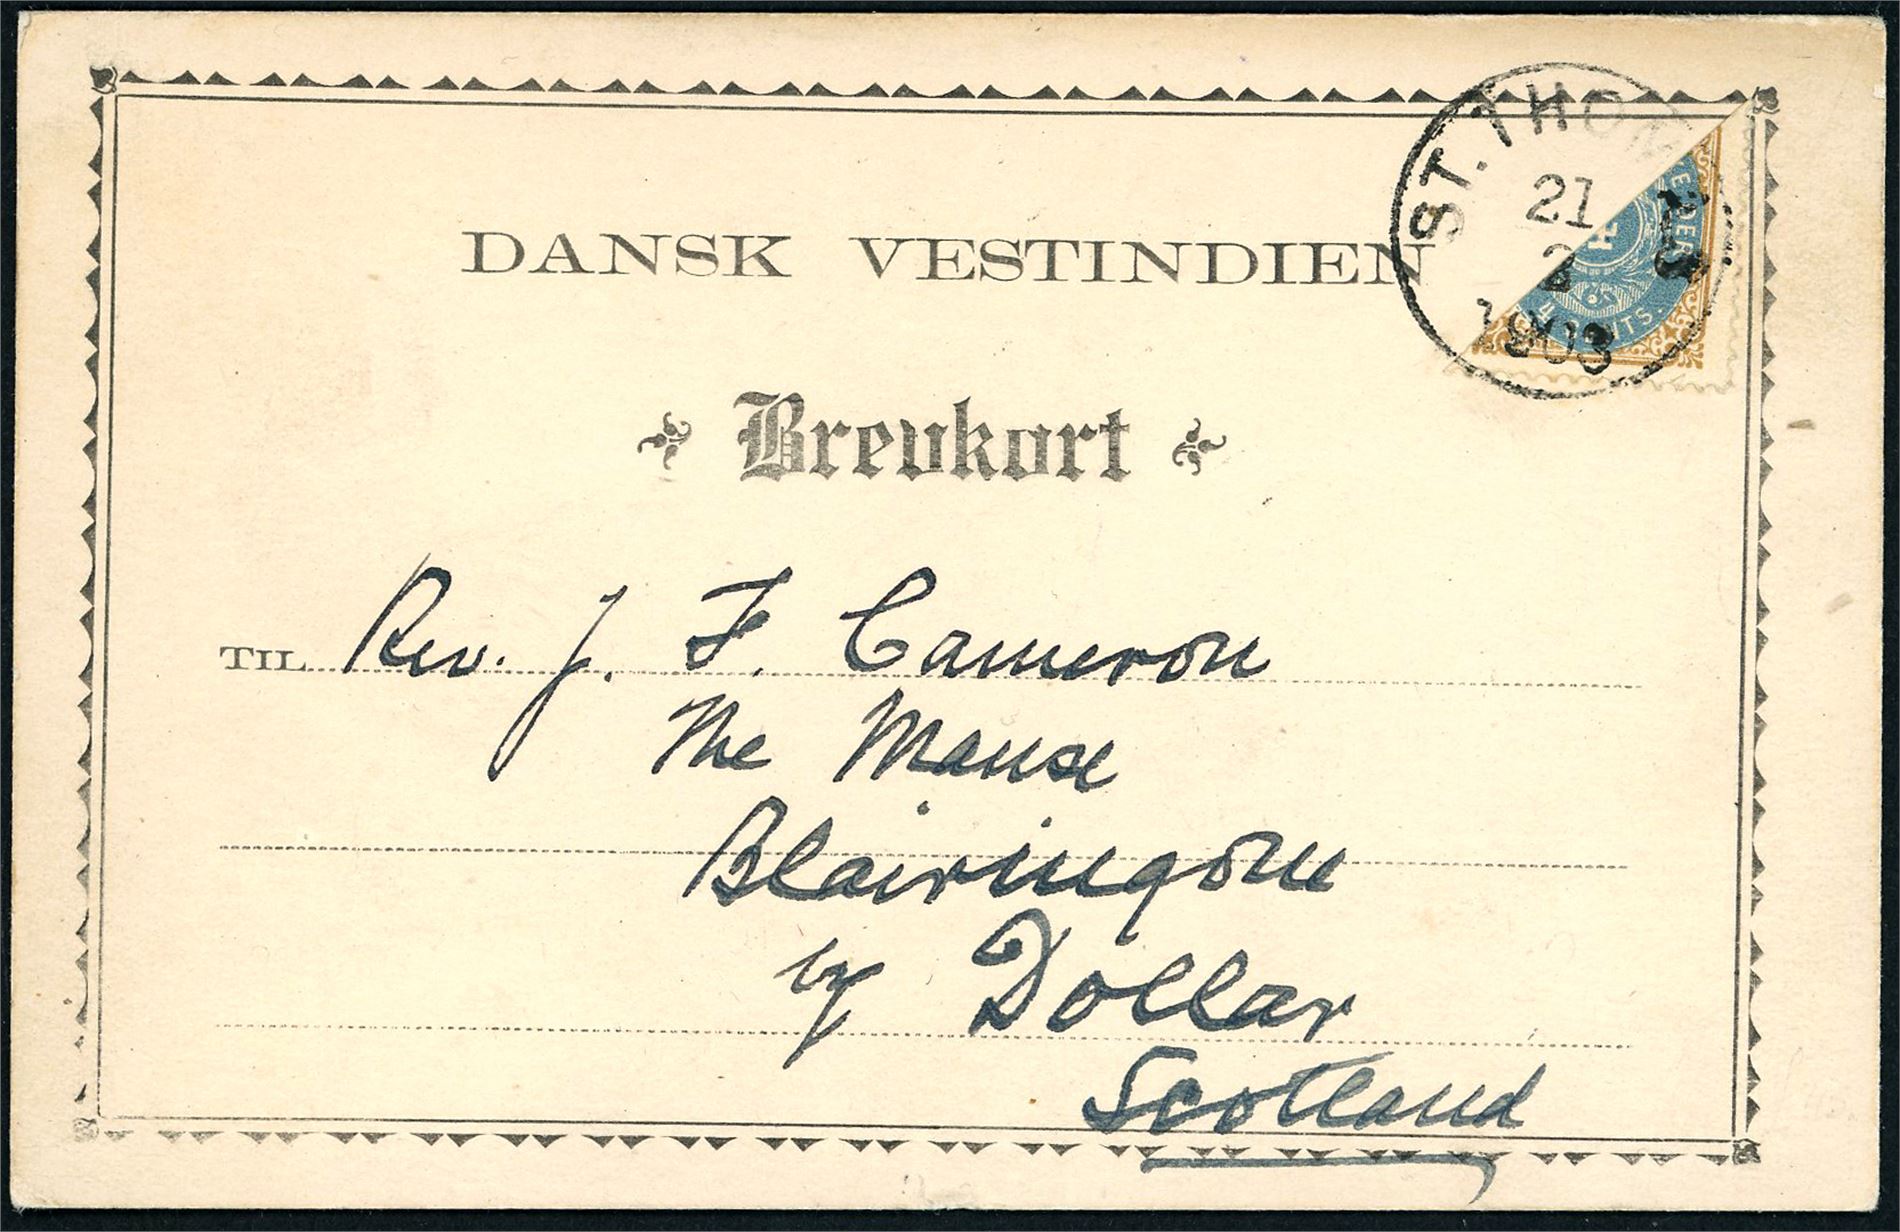 ST. THOM
21
2
1903
4 CENTS.
DANSK VESTINDIEN
Brevkort
TIL Rev. J. F. Cameron
The Manse
Blairingone
by Dollar
Scotland